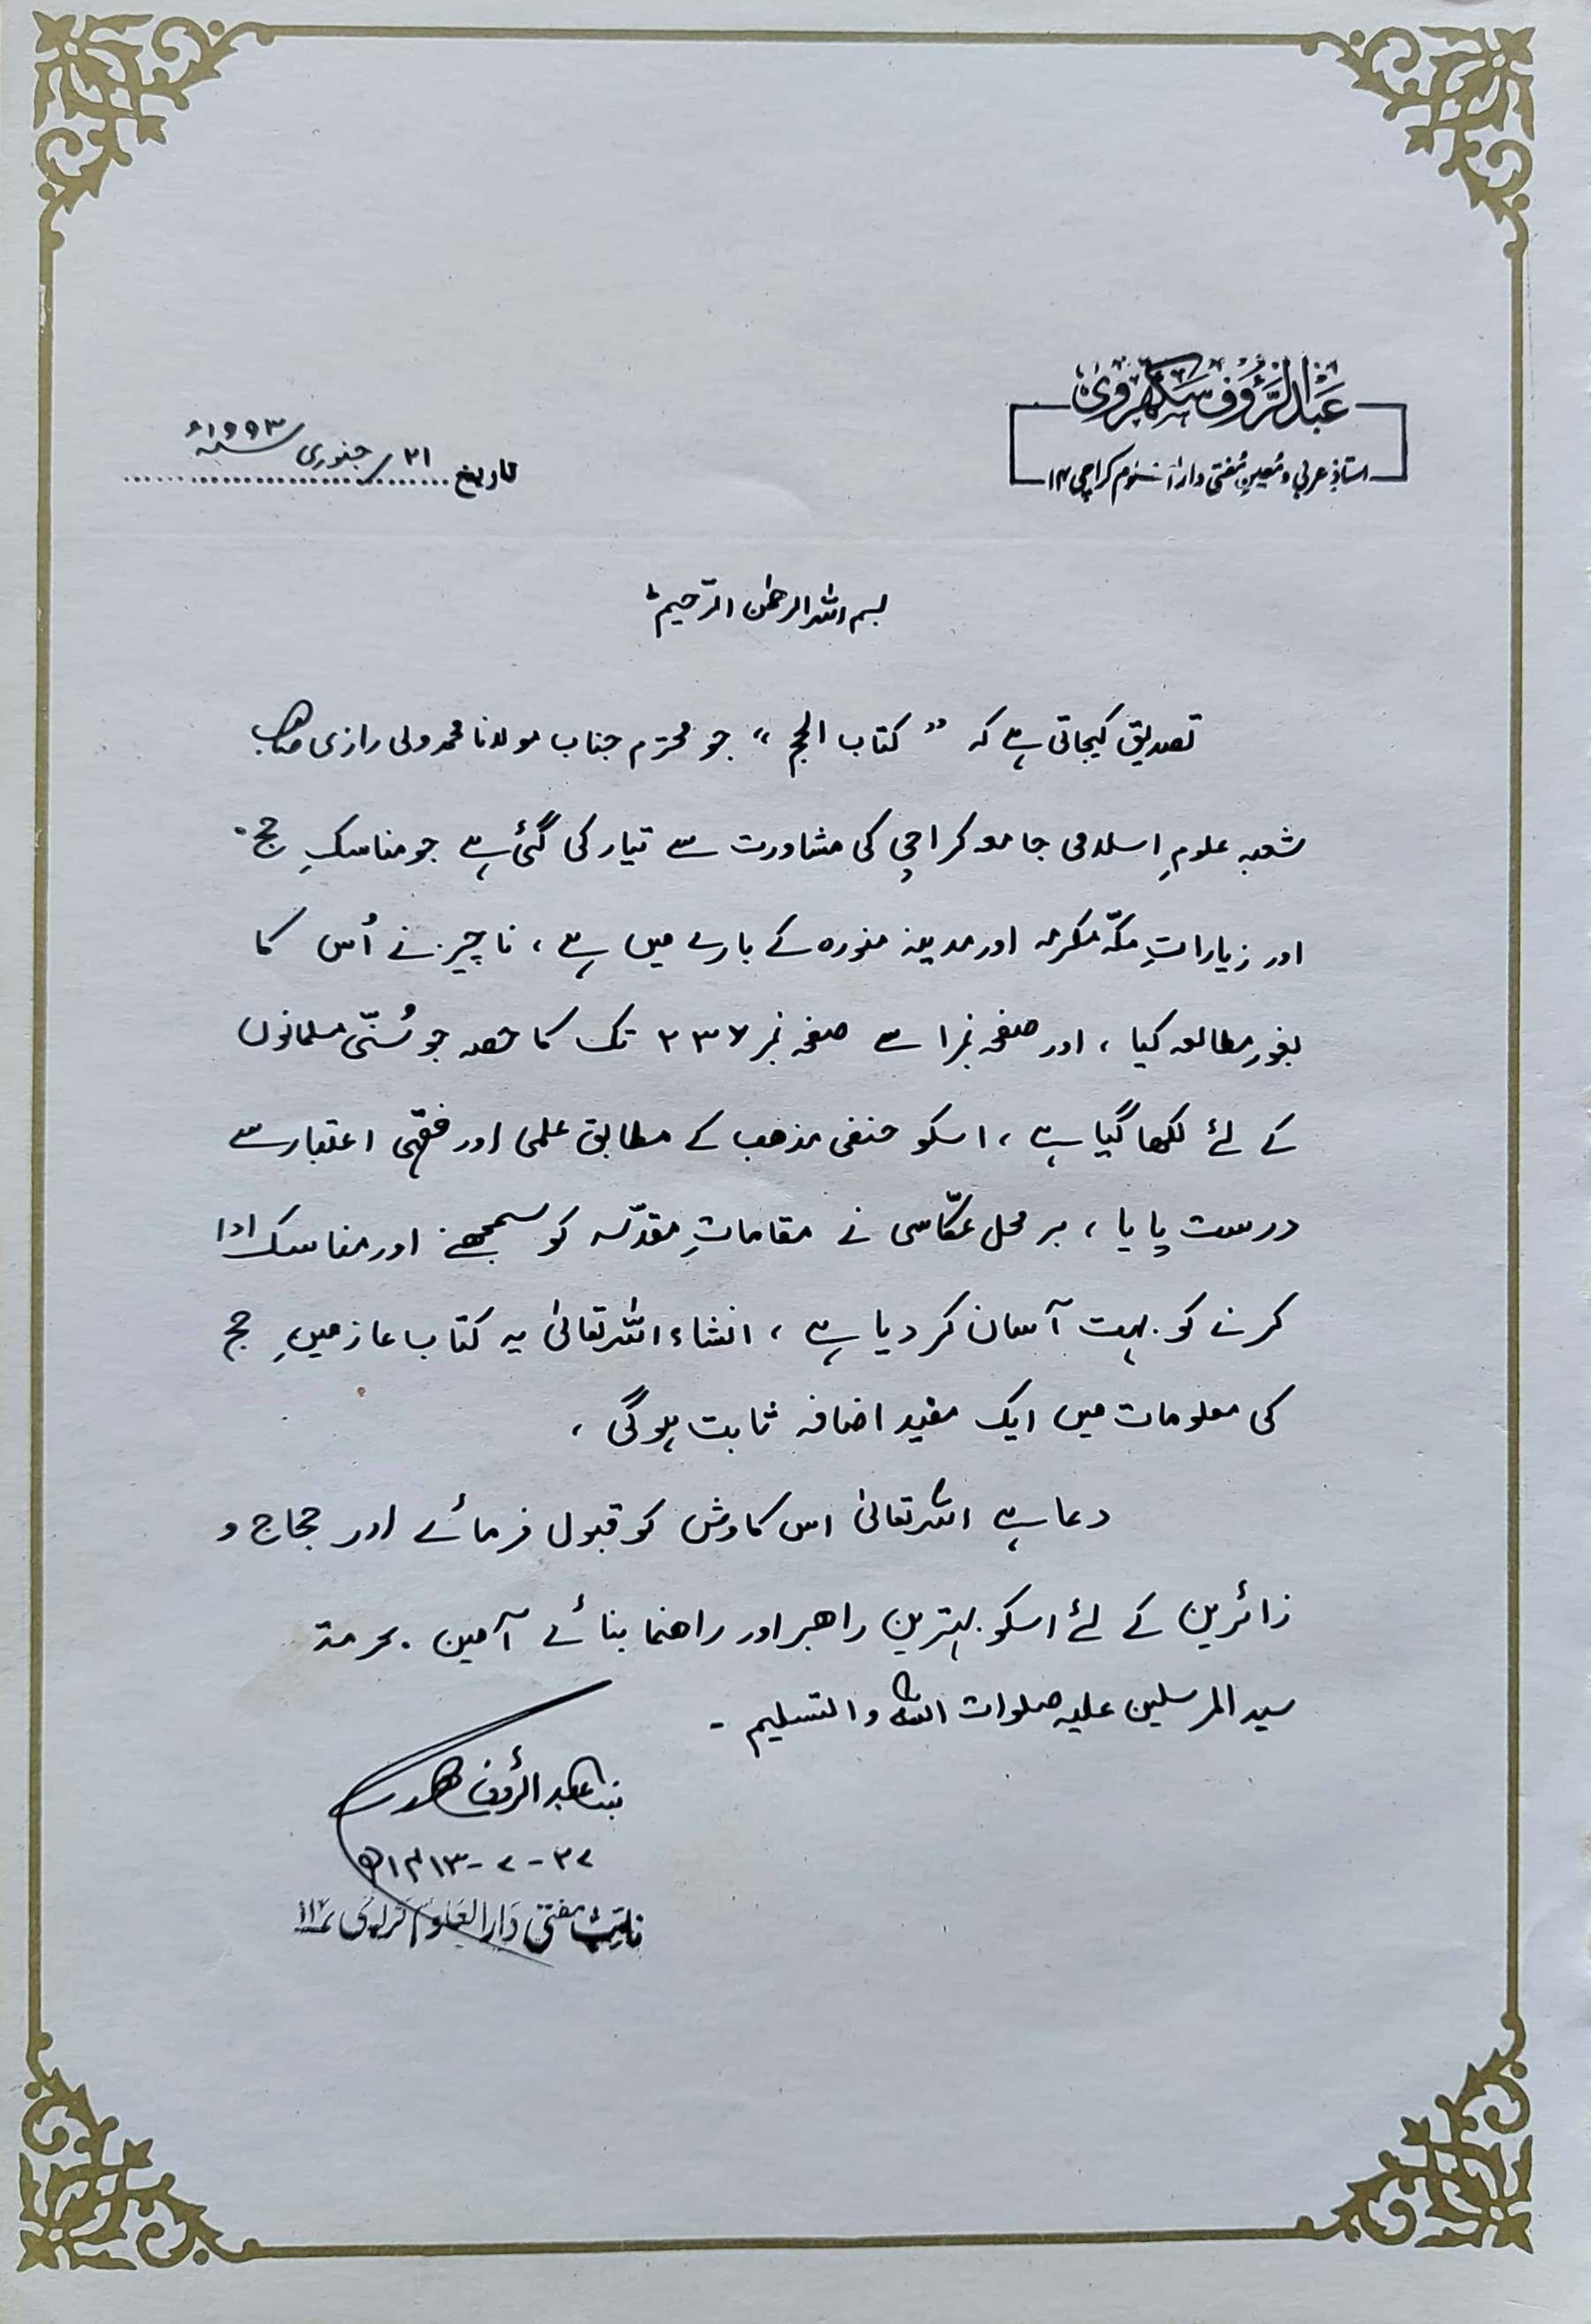 عبدالرؤف سکھروی
استاذِ عربی و مُعینِ مُفتی دارالعلوم کراچی ۱۴
تاریخ ۲۱/جنوری سنہ ۱۹۹۳ء
بسم اللہ الرحمٰن الرّحیم
تصدیق کیجاتی ہے کہ " کتاب الحج " جو محترم جناب مولانا محمد ولی رازی صاحب
شعبہ علومِ اسلامی جامعہ کراچی کی مشاورت سے تیار کی گئی ہے جو مناسکِ حج
اور زیاراتِ مکّہ مکرمہ اور مدینہ منورہ کے بارے میں ہے ، ناچیز نے اُس کا
بغور مطالعہ کیا ، اور صفحہ نمبر ۱ سے صفحہ نمبر ۲۳۷ تک کا حصہ جو سُنّی مسلمانوں
کے لئے لکھا گیا ہے ، اسکو حنفی مذھب کے مطابق علمی اور فقہی اعتبار سے
درست پایا ، بر محل عکّاسی نے مقاماتِ مقدّسہ کو سمجھنے اور مناسک ادا
کرنے کو بہت آسان کر دیا ہے ، انشاء اللہ تعالیٰ یہ کتاب عازمینِ حج
کی معلومات میں ایک مفید اضافہ ثابت ہوگی ،
دعا ہے اللہ تعالیٰ اس کاوش کو قبول فرمائے اور حجاج و
زائرین کے لئے اسکو بہترین راھبر اور راھنما بنائے آمین . بحرمۃ
سید المرسلین علیہ صلوات اللہ والتسلیم -
بندہ عبدالرؤف سکھروی
۲۷ - ۷ - ۱۴۱۳ھ
نائب مفتی دارالعلوم کراچی ۱۴